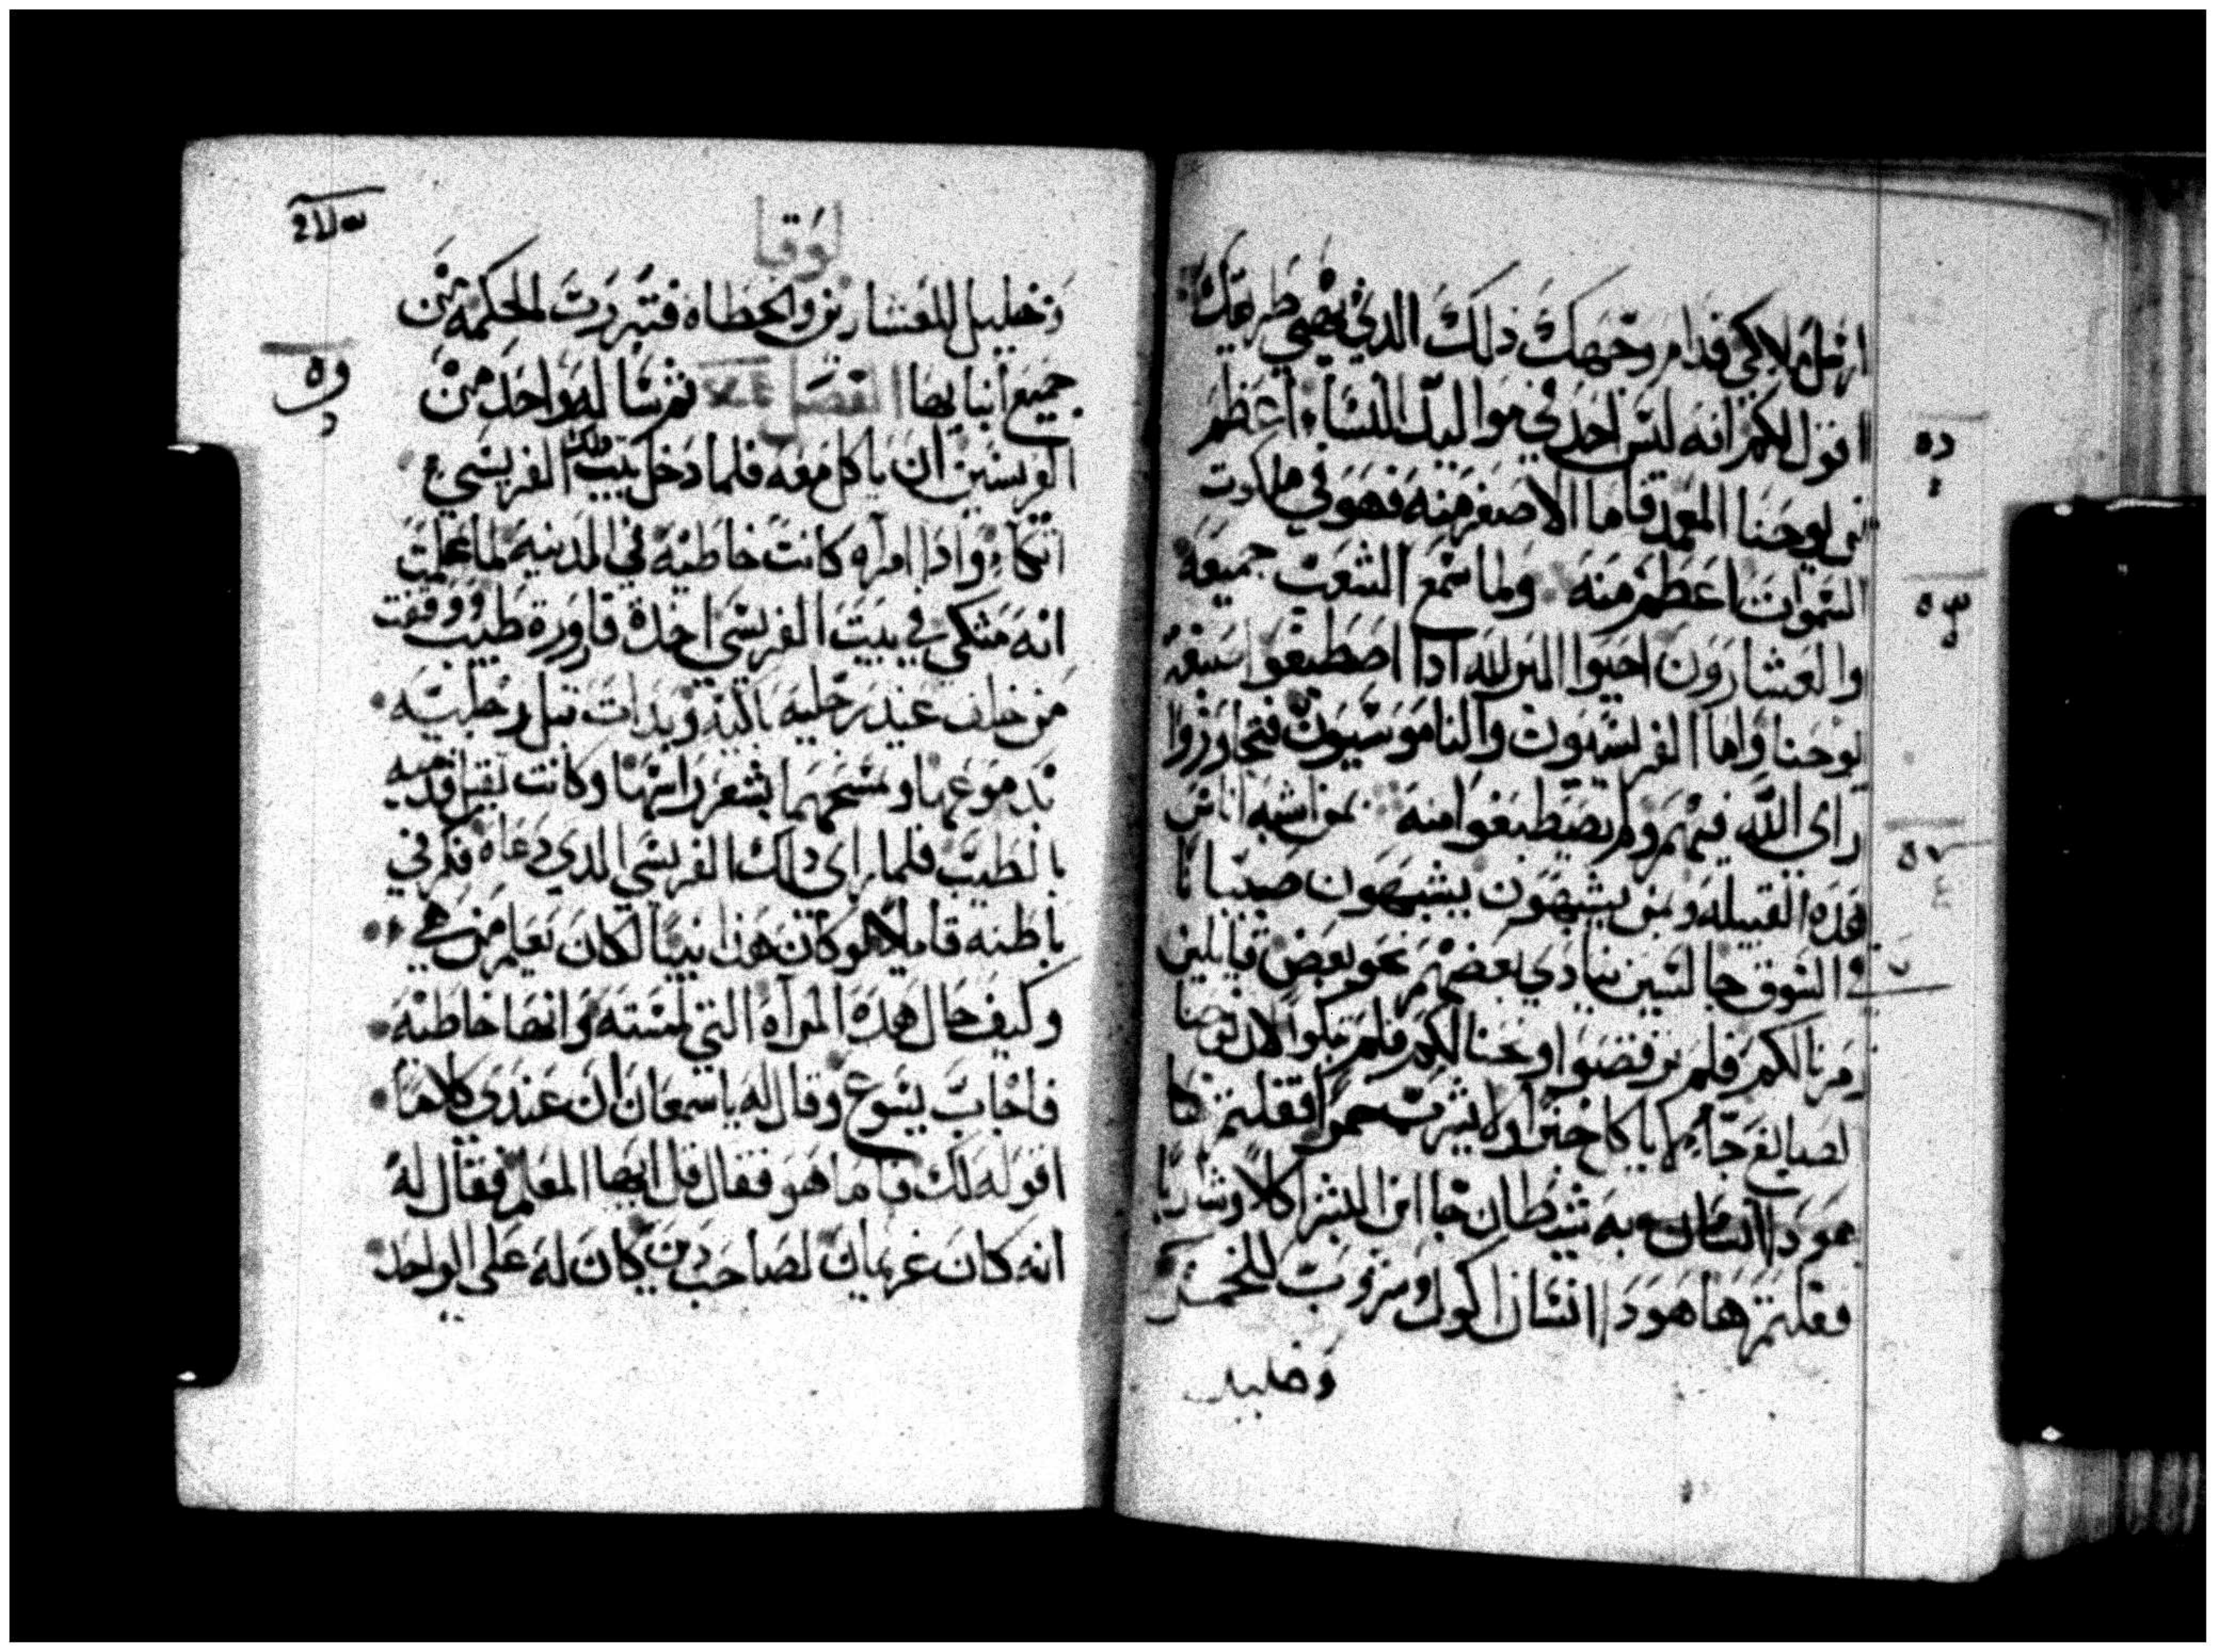 ارسل ملاكي قدام وجهك ذلك الدي يصي طريقك
اقول لكم انه ليس احد في مواليد النساء اعظم
من يوحنا المعمد فاما الاصغر منه فهو في ملكوت
السموات اعظم منه ولما سمع الشعب جميعه
والعشارون احيوا الله اذا اصطبغوا صبغة
يوحنا واما الفريسيون والناموسيون فتجاوزوا
راي الله فيهم ولم يصطبغوا منه بمن اشبه اناس
هده القبيله وبمن يشبهون يشبهون صبيانا
في السوق جالسين ينادي بعضهم نحو بعض قايلين
زمرنا لكم فلم ترقصوا ونحنا لكم فلم تبكوا لان يوحنا
الصابغ جاء لا ياكل خبزا ولا يشرب خمرا فقلتم ها
هودا به شيطان جا ابن البشر اكلا وشاربا
فقلتم ها هودا انسان اكول وشروب للخمر
وخليل
لوقا
وخليل للعشارين والخطاه فتبررت الحكمه من
جميع ابنايها الفصل ثم ساله واحد من
الفريسيين ان ياكل معه فلما دخل بيت ذلك الفريسي
اتكاء وادا امراه كانت خاطيه في المدينه لما علمت
انه متكي في بيت الفريسي اخدة قاورة طيب ووقفت
من خلف عند رجليه باكيه وبدات تبل رجليه
بدموعها وتمسحهما بشعر راسها وكانت تقبل قدميه
بالطيب فلما راى ذلك الفريسي الدي دعاه فكر في
باطنه قايلا لو كان هذا نبيا لكان يعلم من هي
وكيف حال هده المراه التي لمسته وانها خاطيه
فاجاب يسوع وقال له ياسمعان ان عندى كلاما
اقوله لك فاما هو فقال قل ايها المعلم فقال له
انه كان غريمان لصاحب دين كان له على الواحد